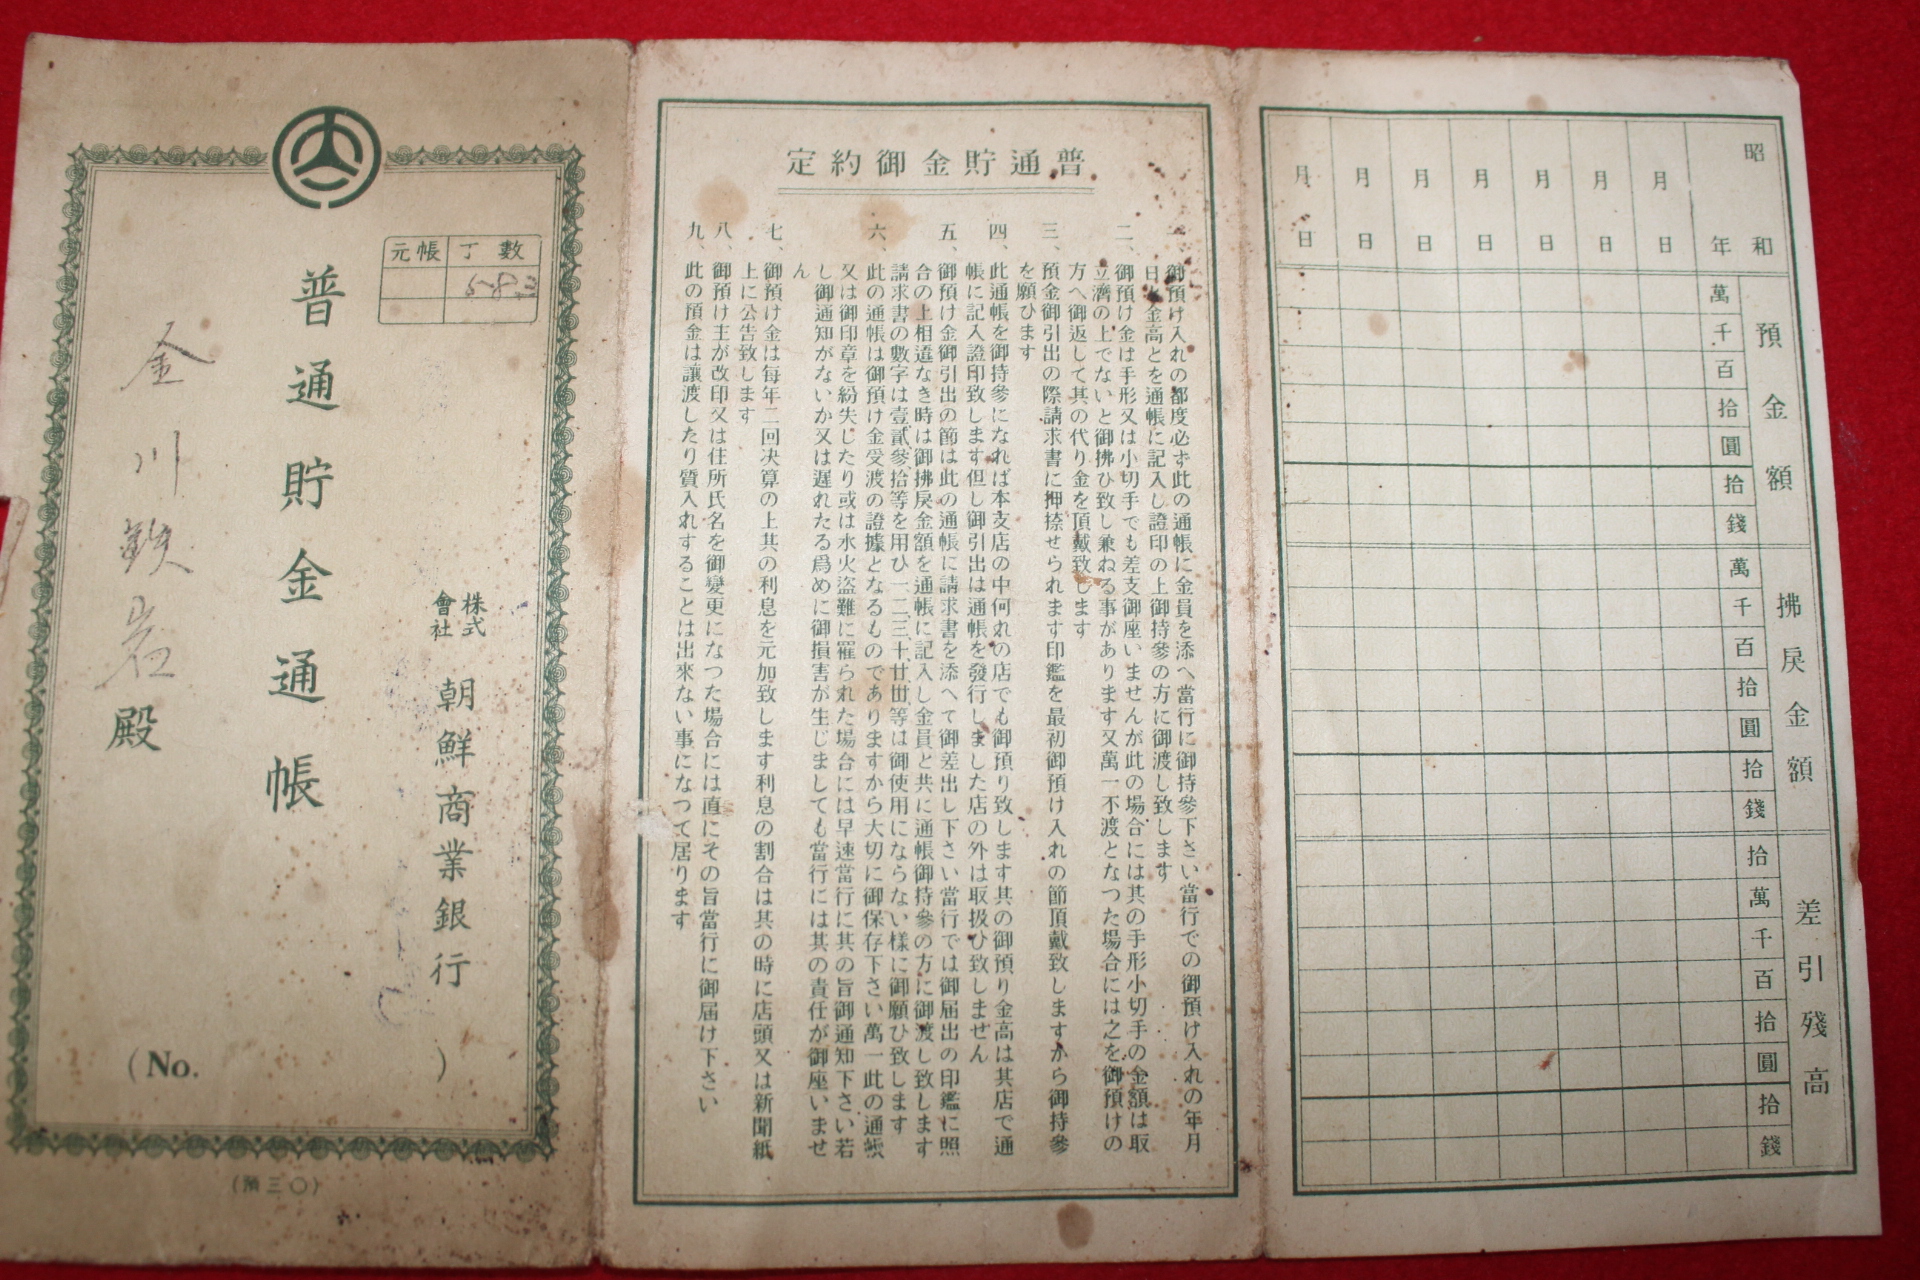 元帳
丁數
583
普通貯金通帳
株式會社
朝鮮商業銀行
金川
岩
殿
(No. )
(預三〇)
普通貯金御約定
一、御預け入れの都度必ず此の通帳に金員を添へ當行に御持參下さい當行での御預け入れの年月
日と金高とを通帳に記入し證印の上御持參の方に御渡し致します
二、御預け金は手形又は小切手でも差支御座いませんが此の場合には其の手形小切手の金額は取
立濟の上でないと御拂ひ致し兼ねる事があります又萬一不渡となつた場合には之を御預けの
方へ御返して其の代り金を頂戴致します
三、預金御引出の際請求書に押捺せられます印鑑を最初御預け入れの節頂戴致しますから御持參
を願ひます
四、此通帳を御持參になれば本支店の中何れの店でも御預り致します其の御預り金高は其店で通
帳に記入證印致します但し御引出は通帳を發行しました店の外は取扱ひ致しません
五、御預け金御引出の節は此の通帳に請求書を添へて御差出し下さい當行では御届出の印鑑に照
合の上相違なき時は御拂戾金額を通帳に記入し金員と共に通帳御持參の方に御渡し致します
請求書の數字は壹貳參拾等を用ひ一二三十廿卅等は御使用にならない樣に御願ひ致します
六、此の通帳は御預け金受渡の證據となるものでありますから大切に御保存下さい萬一此の通帳
又は御印章を紛失したり或は水火盜難に罹られた場合には早速當行に其の旨御通知下さい若
し御通知がないか又は遲れたる爲めに御損害が生じましても當行には其の責任が御座いませ
ん
七、御預け金は每年二回決算の上其の利息を元加致します利息の割合は其の時に店頭又は新聞紙
上に公告致します
八、御預け主が改印又は住所氏名を御變更になつた場合には直にその旨當行に御届け下さい
九、此の預金は讓渡したり質入れすることは出來ない事になつて居ります
昭和
年
月 日
月 日
月 日
月 日
月 日
月 日
月 日
預金額
萬
千
百
拾
圓
拾
錢
拂戾金額
萬
千
百
拾
圓
拾
錢
差引殘高
拾
萬
千
百
拾
圓
拾
錢